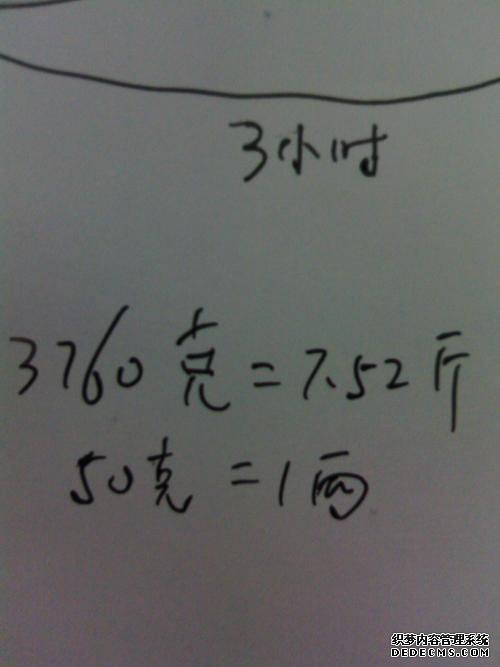 3小时
3760克=7.52斤
50克=1两
织梦内容管理系统
DEDECMS.COM